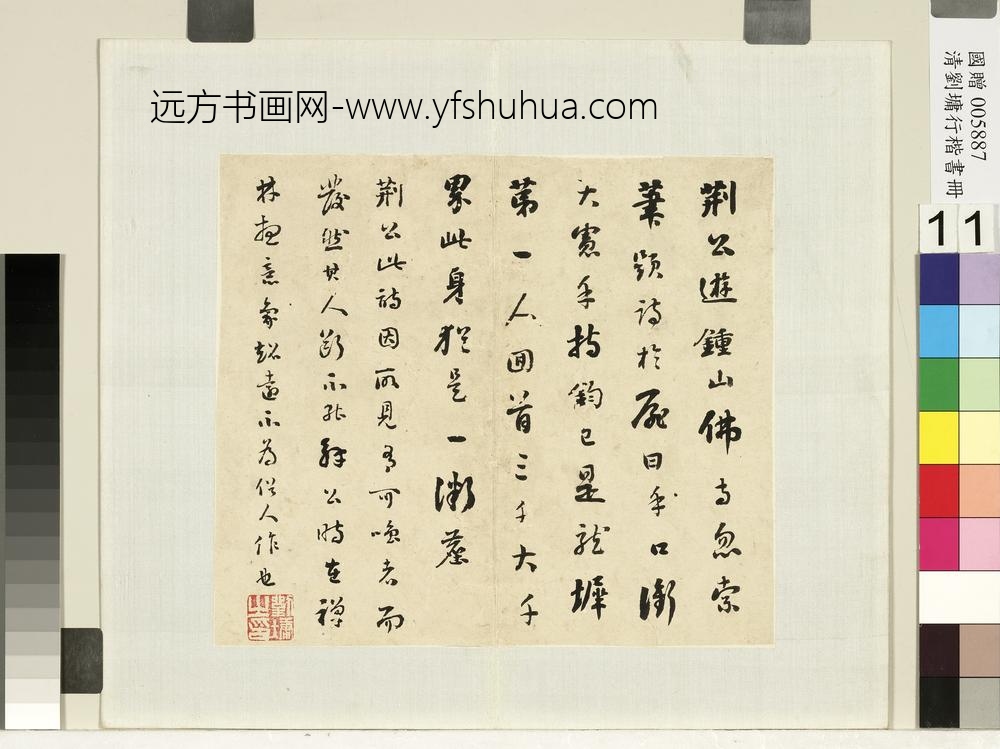 远方书画网-www.yfshuhua.com
國贈 005887
清劉墉行楷書冊
1 1
荆公遊鍾山佛寺忽索
筆題詩於曰手口銜
天憲手持鈞已是龍墀
第一人囬首三千大千
界此身猶是一微塵
荆公此詩因所見有可喻者而
發然其人斷不能解公時在禪
林意象超遠不為俗人作也
劉墉之印